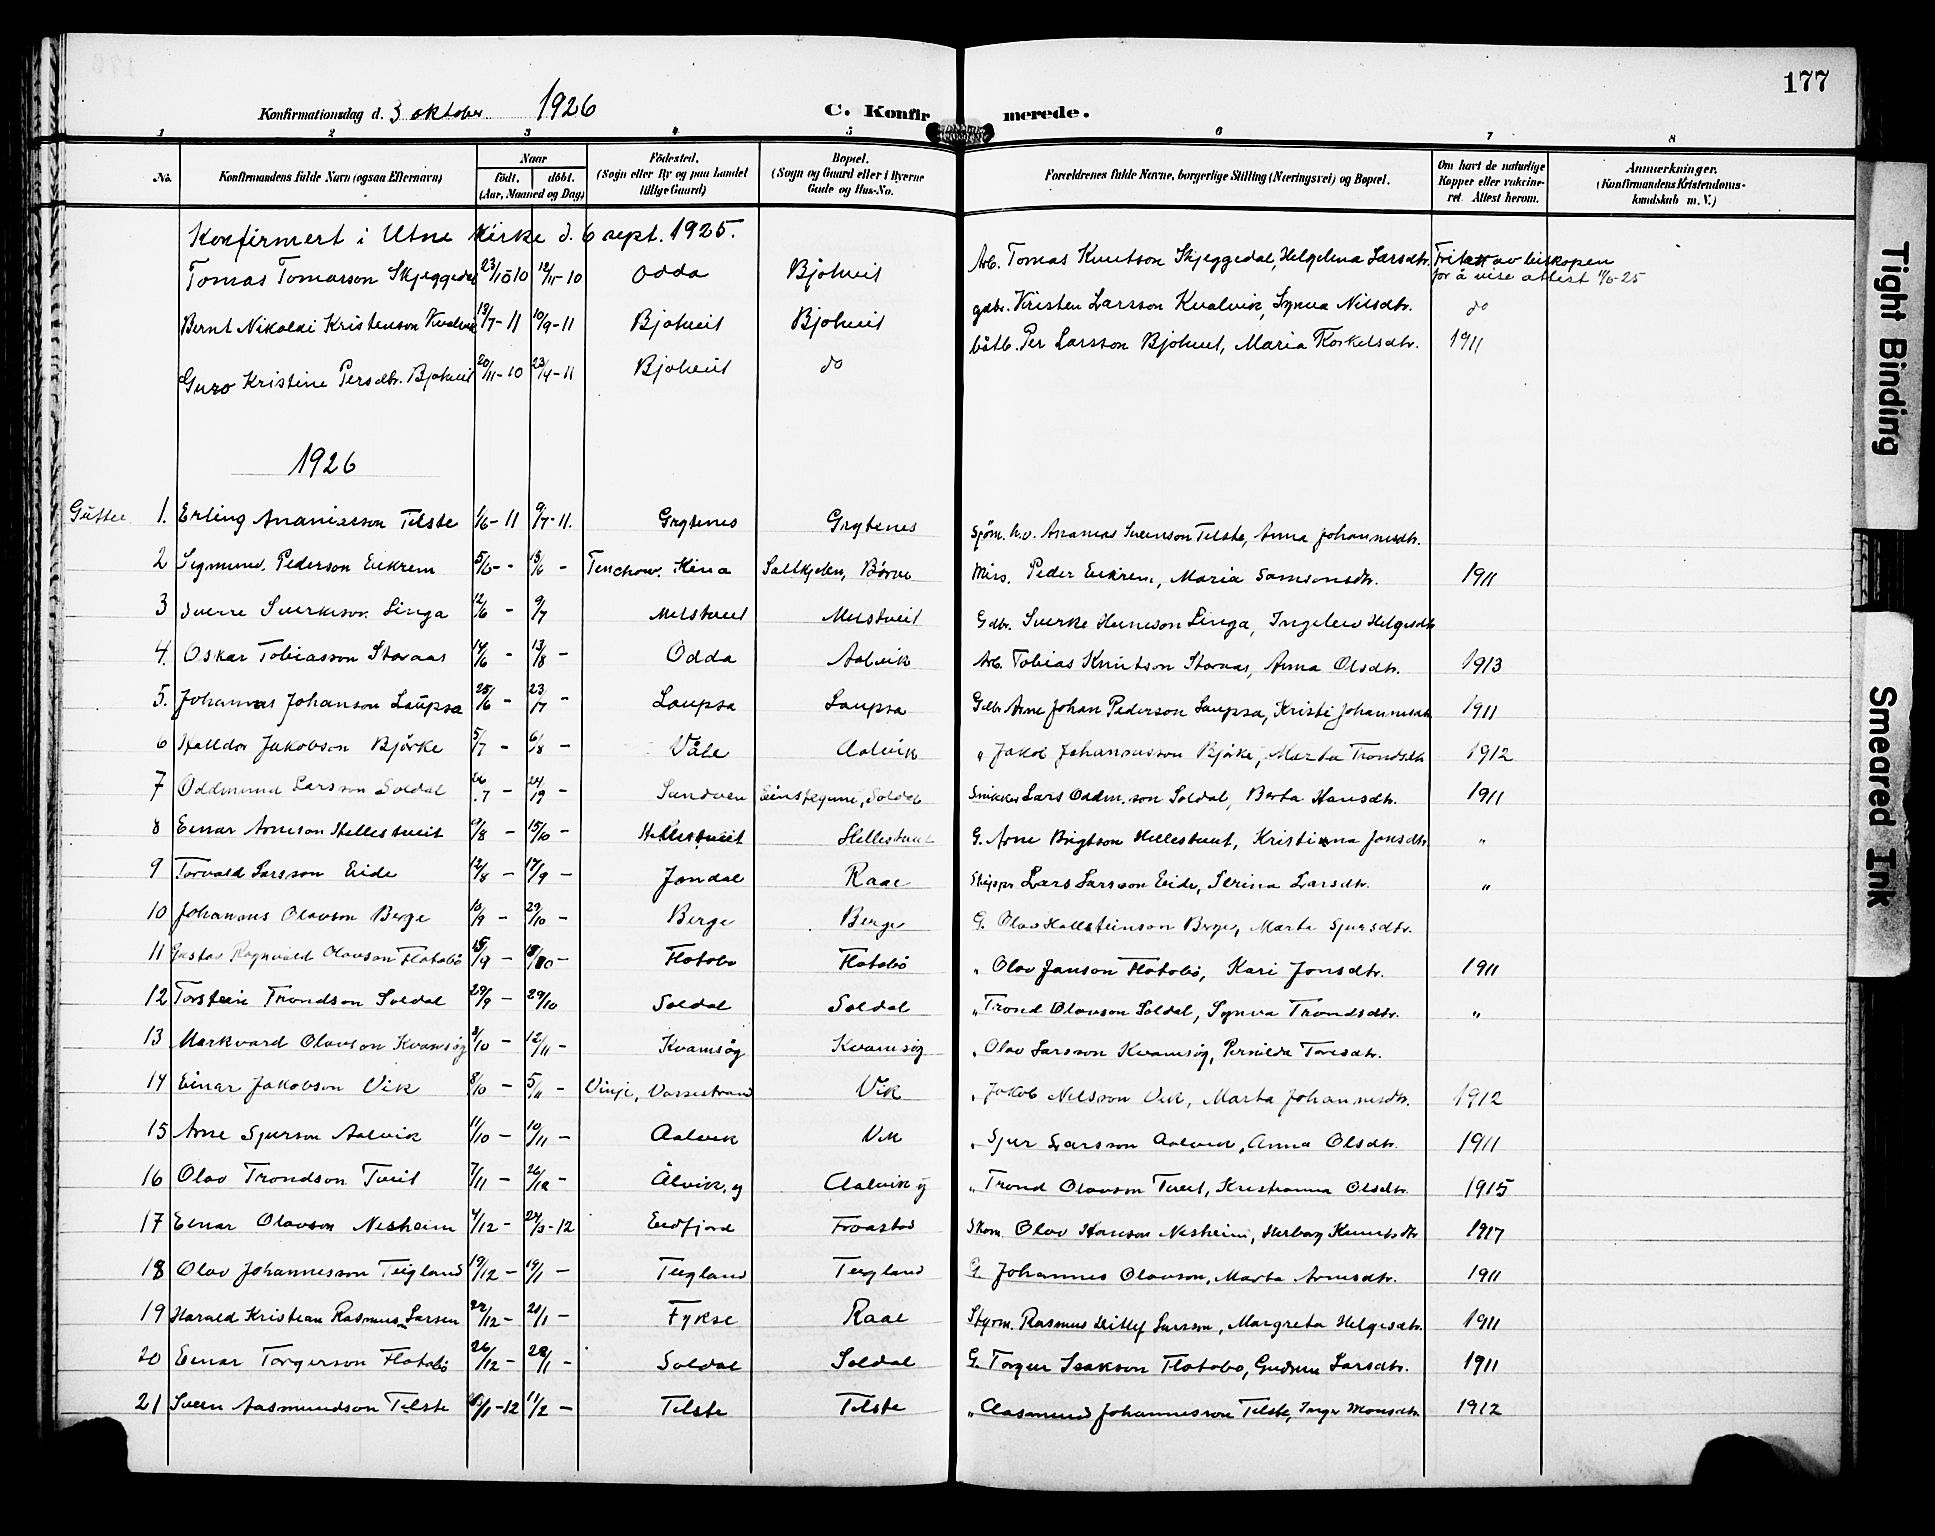 177
Konfirmationsdag d. 3 oktober 1926 C. Konfirmerede.
1 2 3 4 5 6 7 8
No. Konfirmandens fulde Navn (ogsaa Efternavn) Naar født. døbt. (Aar, Maaned og Dag) Fødested. (Sogn eller By og paa Landet tillige Gaard) Bopæl. (Sogn og Gaard eller i Byerne Gade og Hus-No. Forældrenes fulde Navne, borgerlige Stilling (Næringsvei) og Bopæl. Om havt de naturlige Kopper eller vakcineret. Attest herom. Anmærkninger. (Konfirmandens Kristendomskundskab m. V.)
Konfirmert i Utne kirke d. 6 sept. 1925.
Tomas Tomasson Skjeggedal 23/10-10 12/11-10 Odda Bjotveit Arb. Tomas Knutson Skjeggedal, Helgelena Larsdtr. Fritatt av biskopen for å vise attest 11/6-25
Bernt Nikolai Kristenson Kvalvik 13/7-11 10/9-11 Bjotveit Bjotveit gdbr. Kristen Larsson Kvalvik, Synva Nilsdtr. do
Guro Kristine Persdtr. Bjotveit 20/11-10 23/4-11 Bjotveit do båtb. Per Larsson Bjotveit, Maria Torkelsdtr. 1911
1926
Gutter 1. Erling Ananiasson Telste 1/6-11 9/7-11. Grytenes Grytenes Sjøm. Ananias Sveinson Telste, Anna Johannesdtr.
2 Sigmund Pederson Eikrem 5/6-- 15/6 - Tenchow. Kina Saltkjelen, Børve Miss. Peder Eikrem, Maria Samsonsdtr. 1911
3 Sverre Sverkeson Linga 12/6 - 9/7 Melstveit Melstveit Gdbr. Sverke Heineson Linga, Ingeleiv Helgesdtr
4. Oskar Tobiasson Storaas 14/6 - 13/8 - Odda Aalvik Arb. Tobias Knutson Storaas, Anna Olsdtr. 1913
5. Johannes Johanson Laupsa 25/6 - 23/7 - Laupsa Laupsa Gdbr Arne Johan Pederson Laupsa, Kristi Johannesdtr 1911
6 Halldor Jakobson Bjørke 5/7 - 6/8 - Våle Aalvik " Jakob Johannesson Bjørke, Marta Trondsdtr 1912
7 Oddmund Larsson Soldal 26/7 - 24/9 - Sandven Soldal Snikker Lars Oddm.son Soldal, Berta Hansdtr. 1911
8 Einar Arneson Hellestveit 9/8 - 15/10 - Hellestveit Hellestveit G. Arne Brigtson Hellestveit, Kristianna Jonsdtr "
9 Torvald Larsson Eide 12/8 - 17/9 - Jondal Raae Skipper Lars Larsson Eide, Serina Larsdtr. "
10 Johannes Olavson Berge 10/9 - 29/10 - Berge Berge G. Olav Hallsteinson Berge, Marta Sjursdtr.
11 Gustav Ragnvald Olavson Flotabø 15/9 - 8/10- Flotabø Flotabø " Olav Janson Flotabø, Kari Jonsdtr. 1911
12 Torstein Trondson Soldal 29/9 - 29/10 Soldal Soldal " Trond Olavson Soldal, Synva Trondsdtr. "
13 Markvard Olavson Kvamsøy 3/10 - 12/11 - Kvamsøy Kvamsøy " Olav Larsson Kvamsøy, Pernilda Toresdtr.
14 Einar Jakobson Vik 8/10 - 5/11 - Vinje, Vossestrand Vik " Jakob Nelsson Vik, Marta Johannesdtr. 1912
15 Arne Sjurson Aalvik 11/10 - 10/11 - Aalvik Vik " Sjur Larsson Aalvik, Anna Olsdtr. 1911
16 Olav Trondson Tveit 7/11 - 26/12 - Ålvik, y Aalvik y " Trond Olavson Tveit, Kristianna Olsdtr. 1915
17 Einar Olavson Nesheim 4/12 - 24/3-12 Eidfjord Froastad Skom. Olav Hanson Nesheim, Herborg Knutsdtr 1917
18 Olav Johannesson Teigland 19/12 - 14/1 - Teigland Teigland G. Johannes Olavson, Marta Arnesdtr. 1911
19 Harald Kristian Rasmus Larsen 22/12 - 21/1 - Fykse Raae Styrm. Rasmus Ditlef Larsson, Margreta Helgesdtr. 1911
20 Einar Torgerson Flotabø 26/12 - 28/1 - Soldal Soldal G. Torgeir Isakson Flotabø, Gudrun Larsdtr. 1911
21 Svein Aasmundson Telste /1-12 11/2 - Telste Telste " Aasmund Johannesson Telste, Inger Monsdtr. 1912
Tight Binding
Smeared Ink